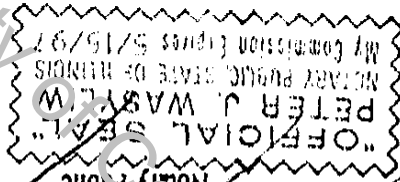 "OFFICIAL SEAL"
PETER J. WASYLIW
NOTARY PUBLIC, STATE OF ILLINOIS
My Commission Expires 5/15/97
Notary Public